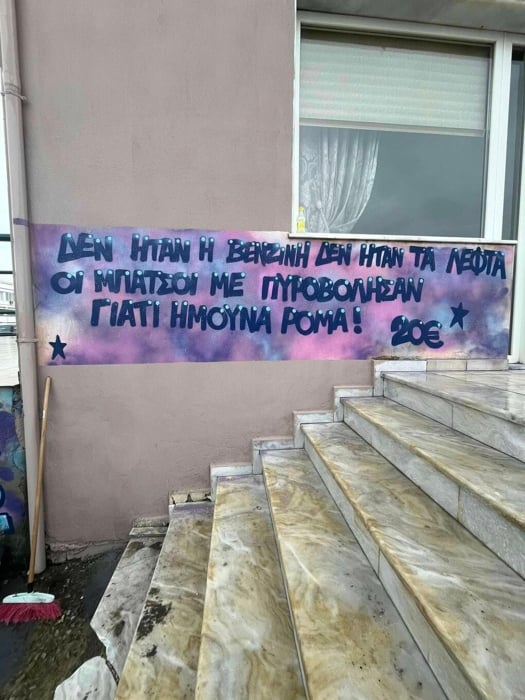 ΔΕΝ ΗΤΑΝ Η ΒΕΝΖΙΝΗ ΔΕΝ ΗΤΑΝ ΤΑ ΛΕΦΤΑ
ΟΙ ΜΠΑΤΣΟΙ ΜΕ ΠΥΡΟΒΟΛΗΣΑΝ
ΓΙΑΤΙ ΗΜΟΥΝΑ ΡΟΜΑ!
20€